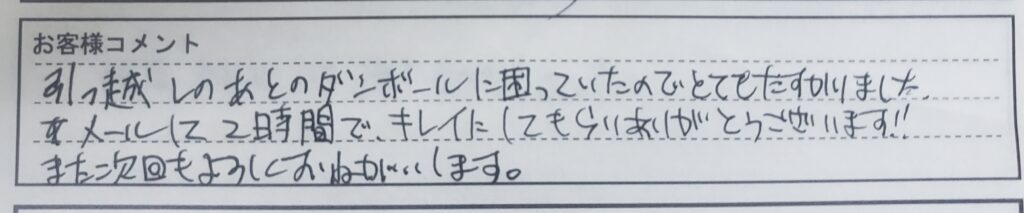 お客様コメント
引っ越しのあとのダンボールに困っていたのでとてもたすかりました。
メールして2時間で、キレイにしてもらいありがとうございます!!
また次回もよろしくおねがいします。